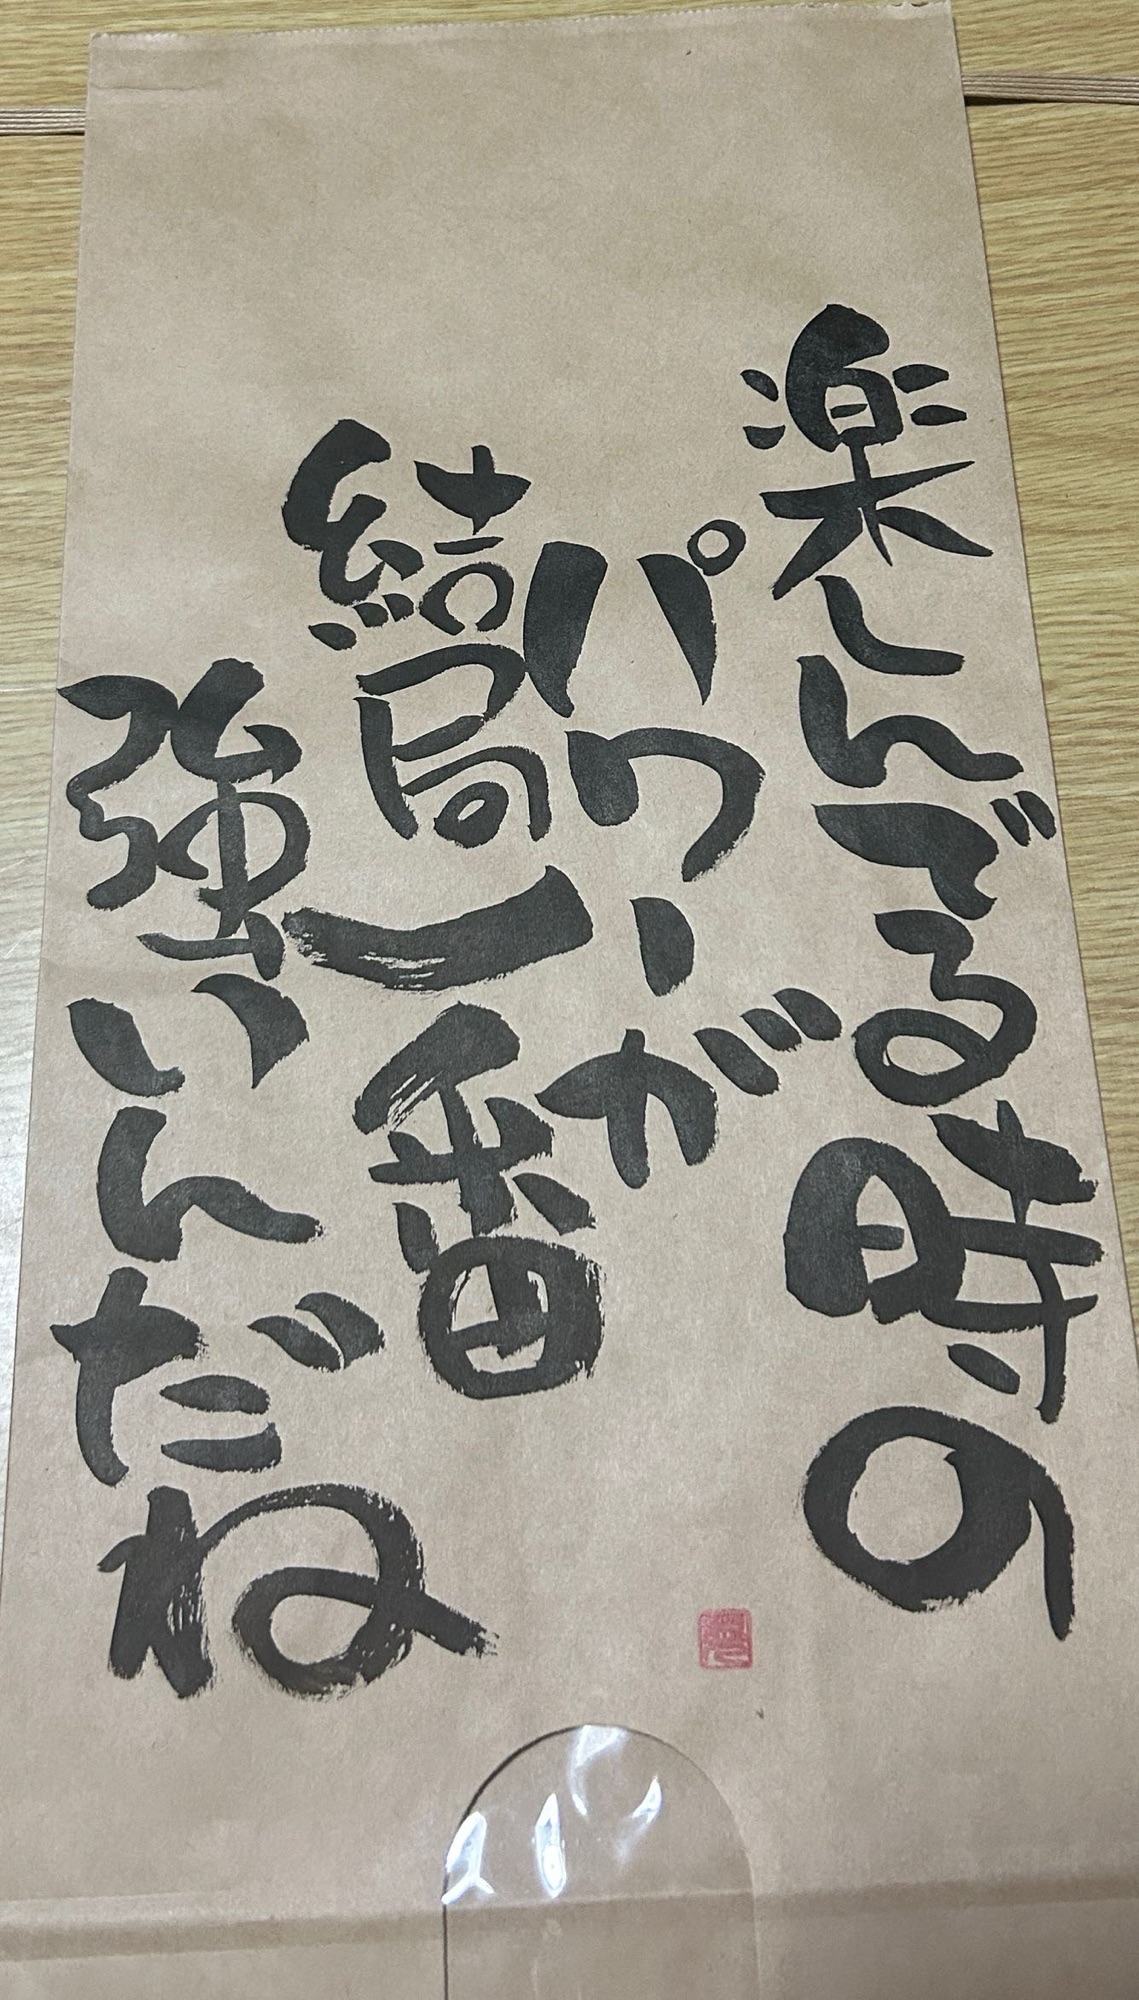 楽しんでる時の
パワーが
結局一番
強いんだね